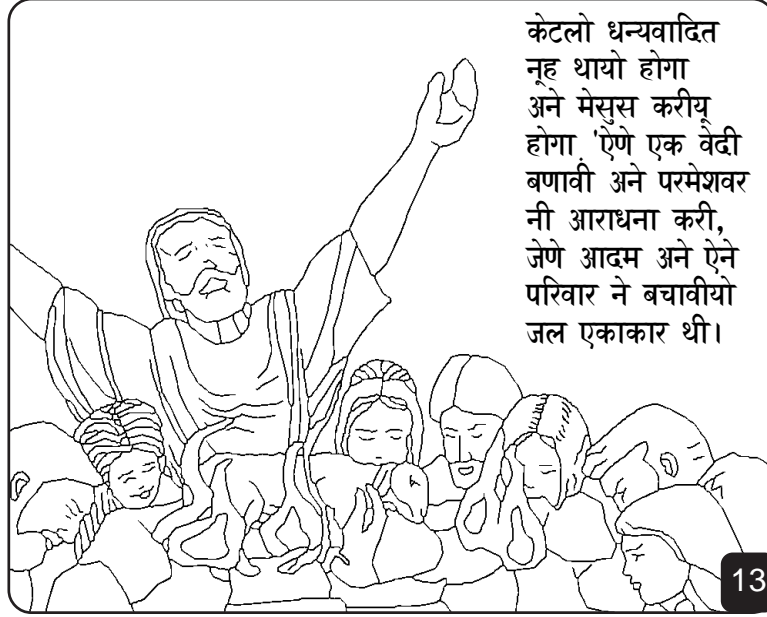 केटलो धन्यवादित
नूह थायो होगा
अने मेसुस करीयू
होगा. 'ऐणे एक वेदी
बणावी अने परमेशवर
नी आराधना करी,
जेणे आदम अने ऐने
परिवार ने बचावीयो
जल एकाकार थी।
13